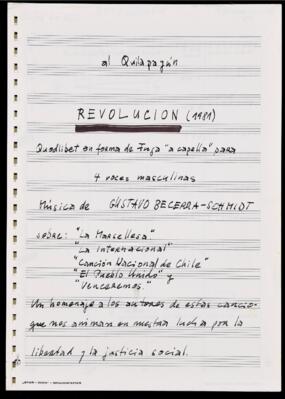 al Quilapayún
REVOLUCION (1981)
Quodlibet en forma de Fuga "a capella" para
4 voces masculinas
Música de GUSTAVO BECERRA-SCHMIDT
sobre: "La Marsellesa"
"La Internacional"
"Canción Nacional de Chile"
"El Pueblo Unido" y
"Venceremos."
Un homenaje a los autores de estas cancio-
que nos animan en nuestra lucha por la
libertad y la justicia social.